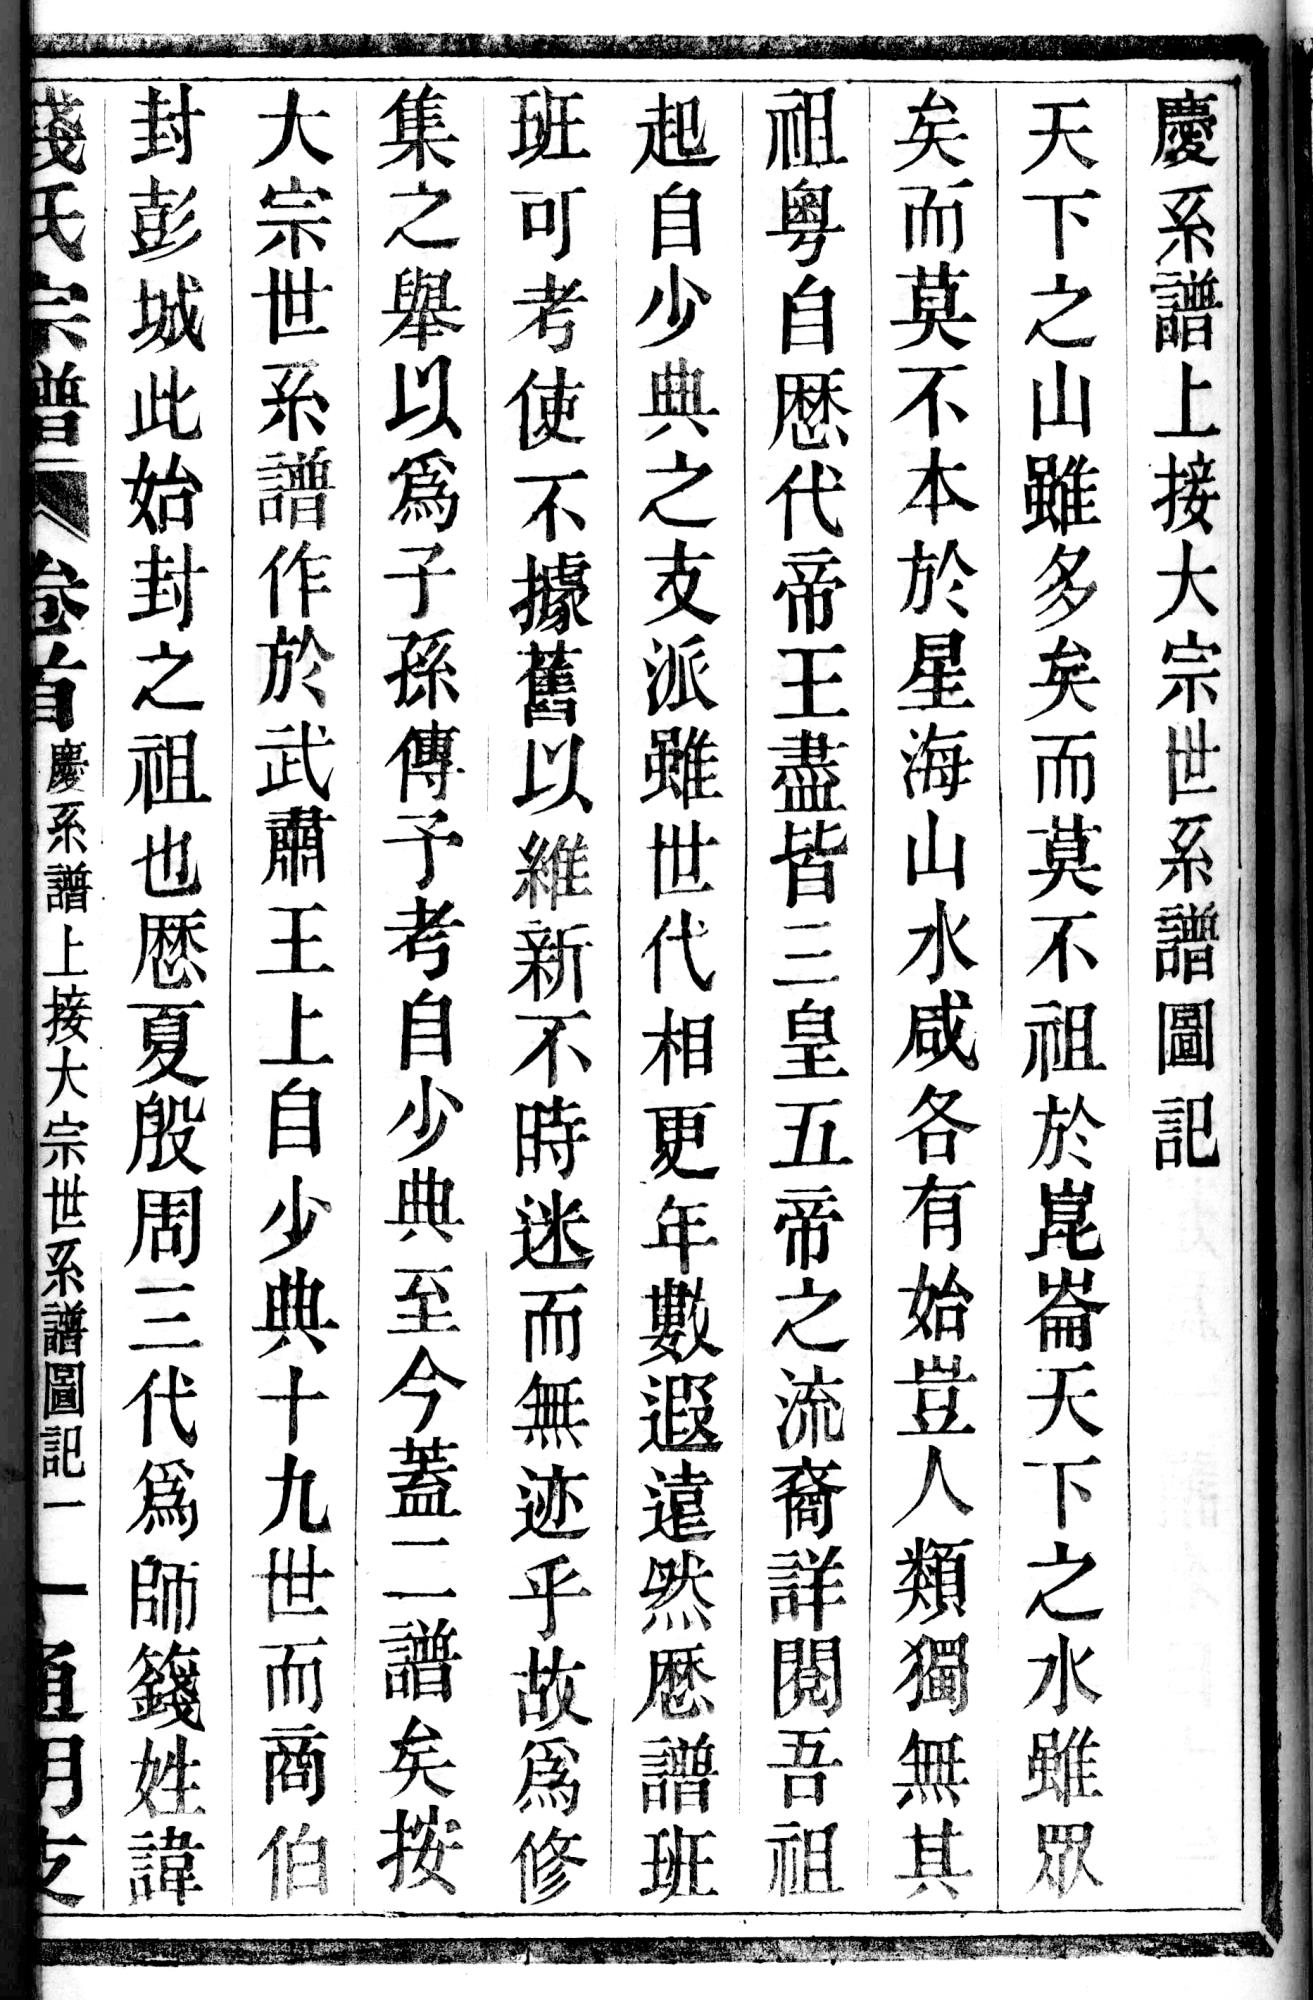 慶系譜上接大宗世系譜圖記
天下之山雖多矣而莫不祖於崑崙天下之水雖眾
矣而莫不本於星海山水咸各有始豈人類獨無其
祖粵自歷代帝王盡皆三皇五帝之流裔詳閱吾祖
起自少典之支派雖世代相更年數遐遠然歷譜班
班可考使不據舊以維新不時迷而無迹乎故為修
集之舉以為子孫傳予考自少典至今蓋二譜矣按
大宗世系譜作於武肅王上自少典十九世而商伯
封彭城此始封之祖也歷夏殷周三代為師籛姓諱
錢氏宗譜 卷首 慶系譜上接大宗世系譜圖記一 一 通明支